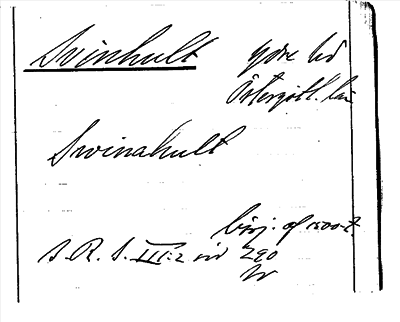 Svinhult Ydre hd
Östergötl. län
Svinahult
börj. af 1500-t.
S. R. S. III:2 sid 290